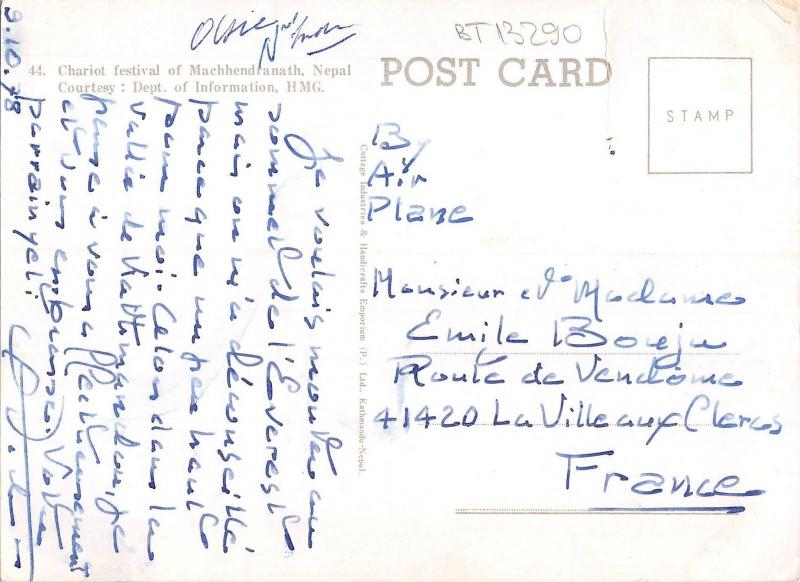 BT13290
44. Chariot festival of Machhendranath, Nepal
Courtesy : Dept. of Information, HMG.
POST CARD
STAMP
9.10.78
Je voulais monter au
sommet de l'Everest
mais on m'a déconseillé
parceque un peu haut
pour moi. Alors dans la
vallée de Kathmandou, je
pense à vous affectueusement
et vous embrasse. Votre
Cottage Industries & Handicrafts Emporium (P.) Ltd., Kathmandu-Nepal.
By
Air
Plane
Monsieur et Madame
Emile
Route de Vendôme
41420 La Ville aux Clercs
France